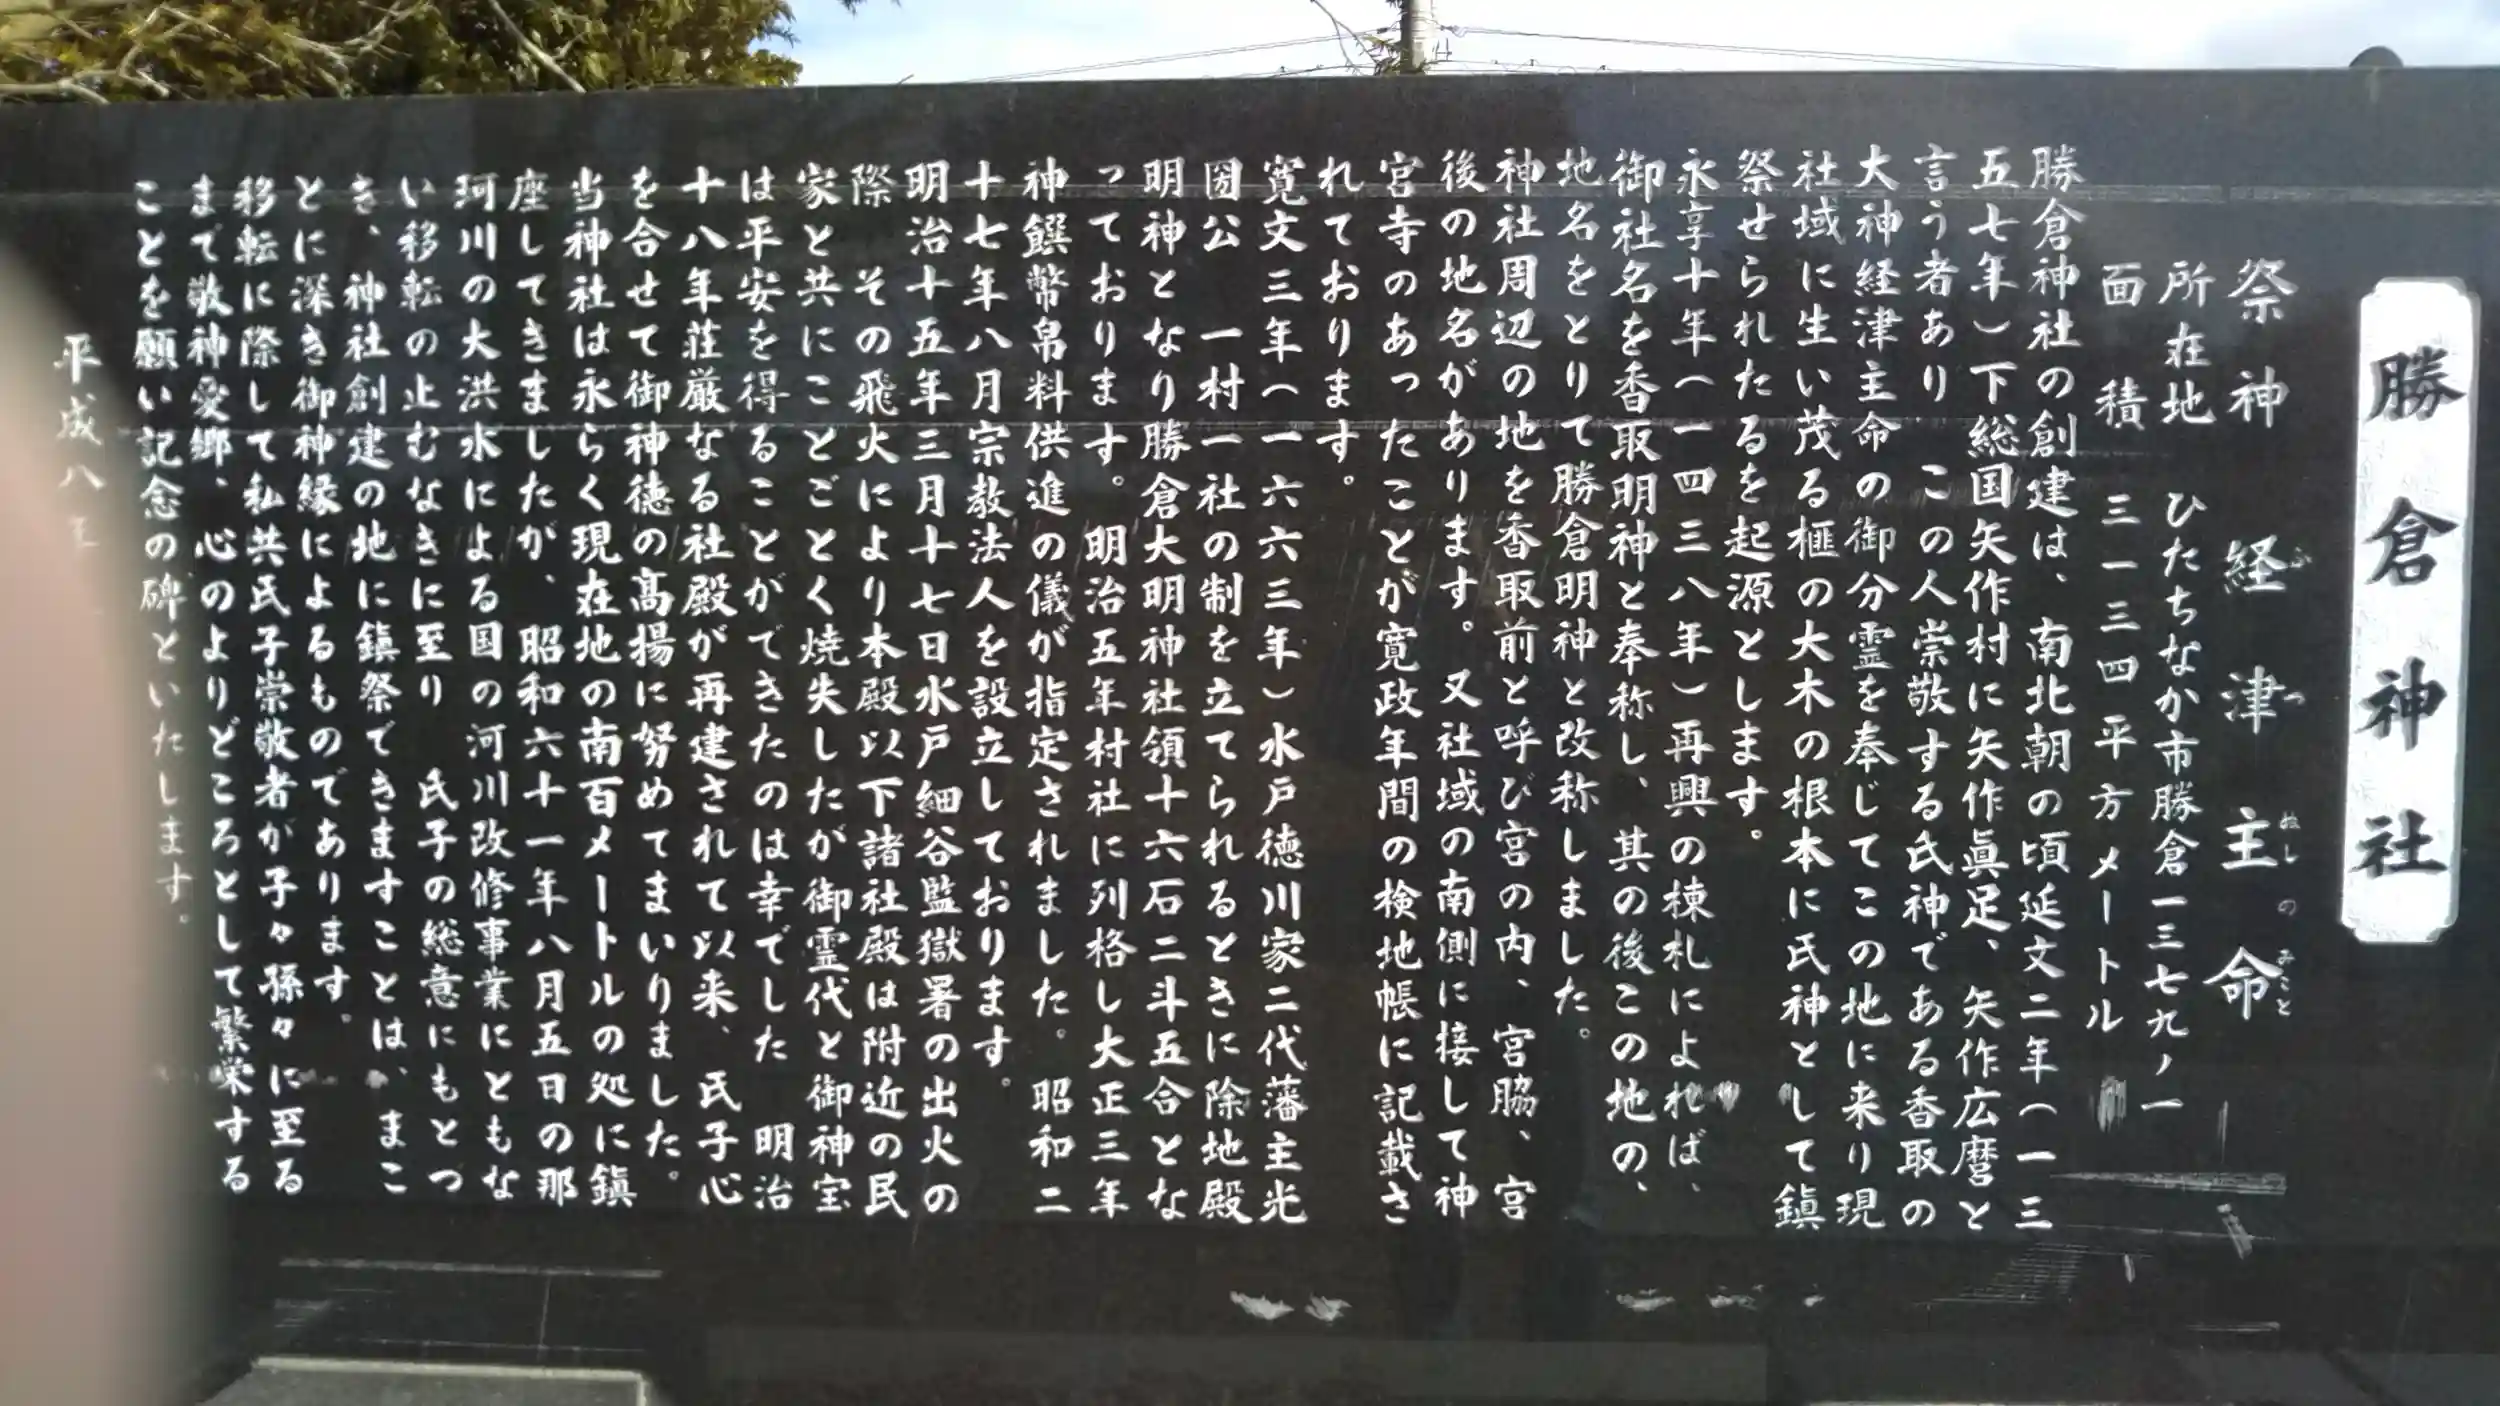 勝倉神社
祭神　経津主命
ふつぬしのみこと
所在地　ひたちなか市勝倉一三七九ノ一
面積　三一三四平方メートル
勝倉神社の創建は、南北朝の頃延文二年(一三
五七年)下総国矢作村に矢作眞足、矢作広麿と
言う者あり　この人崇敬する氏神である香取の
大神経津主命の御分霊を奉じてこの地に来り現
社域に生い茂る榧の大木の根本に氏神として鎮
祭せられたるを起源とします。
永享十年(一四三八年)再興の棟札によれば、
御社名を香取明神と奉称し、其の後この地の、
地名をとりて勝倉明神と改称しました。
神社周辺の地を香取前と呼び宮の内、宮脇、宮
後の地名があります。又社域の南側に接して神
宮寺のあったことが寛政年間の検地帳に記載さ
れております。
寛文三年(一六六三年)水戸徳川家二代藩主光
圀公　一村一社の制を立てられるときに除地殿
明神となり勝倉大明神社領十六石二斗五合とな
っております。明治五年村社に列格し大正三年
神饌幣帛料供進の儀が指定されました。昭和二
十七年八月宗教法人を設立しております。
明治十五年三月十七日水戸細谷監獄署の出火の
際　その飛火により本殿以下諸社殿は附近の民
家と共にことごとく焼失したが御霊代と御神宝
は平安を得ることができたのは幸でした　明治
十八年荘厳なる社殿が再建されて以来、氏子心
を合せて御神徳の高揚に努めてまいりました。
当神社は永らく現在地の南百メートルの処に鎮
座してきましたが、昭和六十一年八月五日の那
珂川の大洪水による国の河川改修事業にともな
い移転の止むなきに至り　氏子の総意にもとづ
き、神社創建の地に鎮祭できますことは、まこ
とに深き御神縁によるものであります。
移転に際して私共氏子崇敬者が子々孫々に至る
まで敬神愛郷、心のよりどころとして繁栄する
ことを願い記念の碑といたします。
平成八年